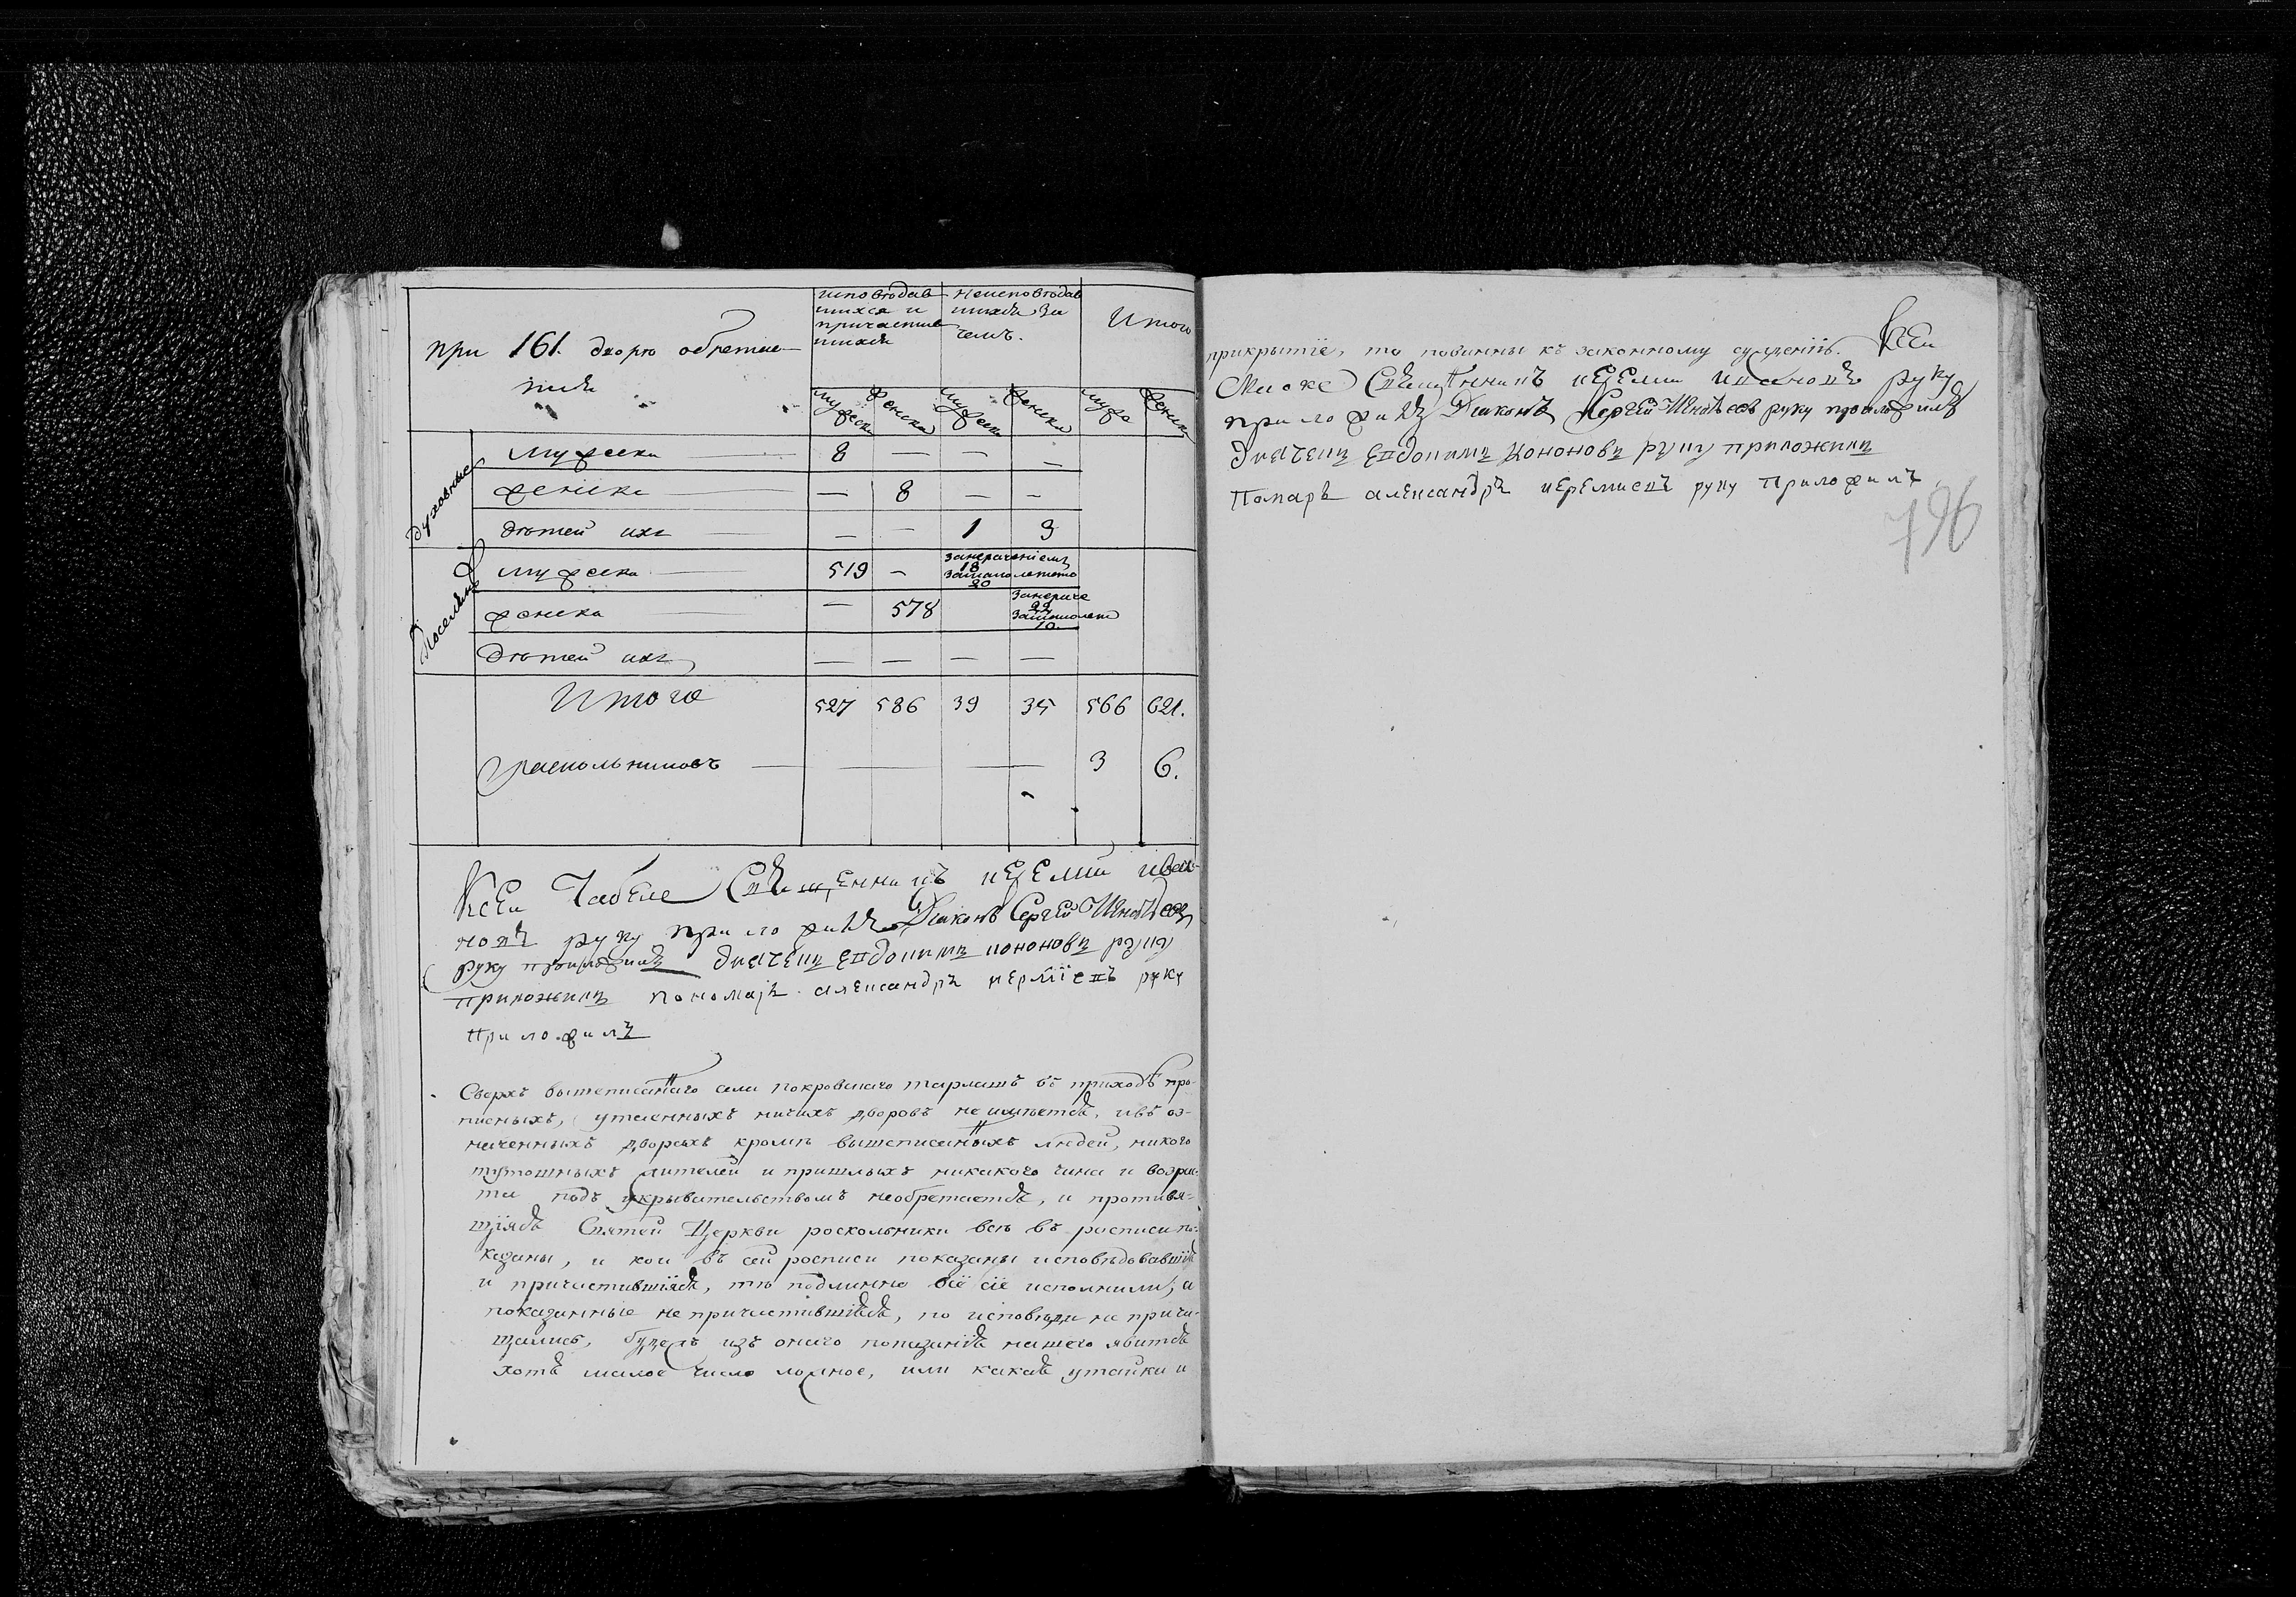 при 161. дворѣ обретаю-
щихся
исповѣдав-
шихся и
причастив
шихся
неисповѣдав
шихся за
чемъ.
Итого
мужеска женска мужеска женска муже женска
духовные
мужеска — 8 — — —
женска — — 8 — —
дѣтей ихъ — — — 1 3
Поселяне
мужеска — 519 — занерачениемъ 18 замалолетето 20
женска — — 578 занераче 22 замалолет 10
дѣтей ихъ — — — —
Итого 527 586 39 35 566 621.
раскольниковъ — — — 3 6.
Ксеи Табеле Священникъ иереми иван-
новъ руку приложилъ Диаконъ Сергей
руку приложилъ дьячекъ евдокимъ кононовъ руку
приложилъ пономарь александръ иермиевъ руку
приложилъ
Сверхъ вышеписаннаго села покровскаго тарлашъ въ приходѣ про-
писныхъ, утаенныхъ ничихъ дворовъ не имѣется, ивъ оз-
наченныхъ дворахъ кромѣ вышеписанныхъ людей, никого
тутошныхъ жителей и пришлыхъ никакого чина и возра-
та подъ укрывательствомъ необретается, и противя-
щїяся Святей Церкви роскольники всѣ въ росписи по-
казаны, и кои въ сей росписи показаны исповѣдовавшїяся
и причастившїяся, тѣ подлинно всї сїе исполнили, а
показанные не причастившїяся, по исповѣди не прича-
щались, будежъ изъ онаго показанїя нашего явится
хотя малое число ложное, или какая утайка и
прикрытїе, то повинны къ законному сужденїю. Ксеи
Священникъ иереми ивановъ руку
приложилъ Диаконъ Сергей руку приложилъ
дьячекъ евдокимъ кононовъ руку приложилъ
Понарь александръ иеремиевъ руку приложилъ
796